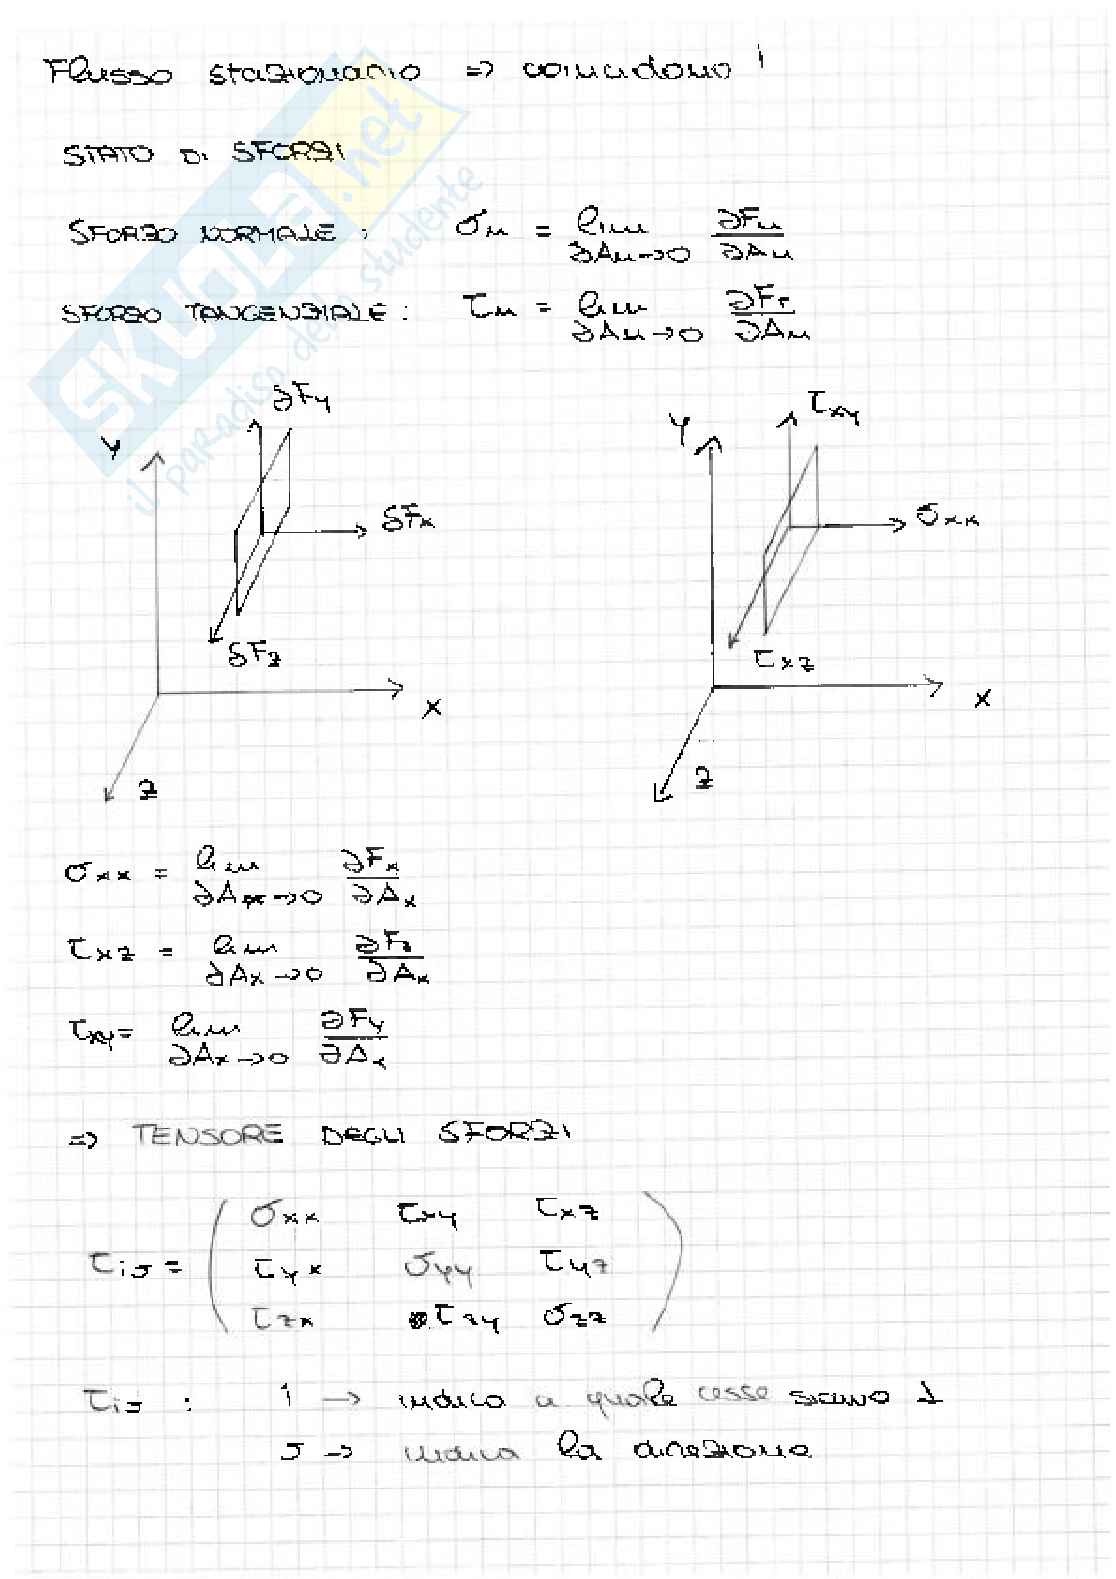 Flusso stazionario => coincidono!
STATO DI SFORZI
SFORZO NORMALE : σn = lim ∂An→0 ∂Fn/∂An
SFORZO TANGENZIALE : τn = lim ∂An→0 ∂Fτ/∂An
SKUOLA.net
il paradiso dello studente
∂Fy
Y
δFx
δFz
X
Z
τxy
Y
σxx
τxz
X
Z
σxx = lim ∂Ax→0 ∂Fx/∂Ax
τxz = lim ∂Ax→0 ∂Fz/∂Ax
τxy = lim ∂Ax→0 ∂Fy/∂Ax
=> TENSORE DEGLI SFORZI
σxx τxy τxz
τij = τyx σyy τyz
τzx τzy σzz
τij : i → indica a quale asse siamo ⊥
j → indica la direzione